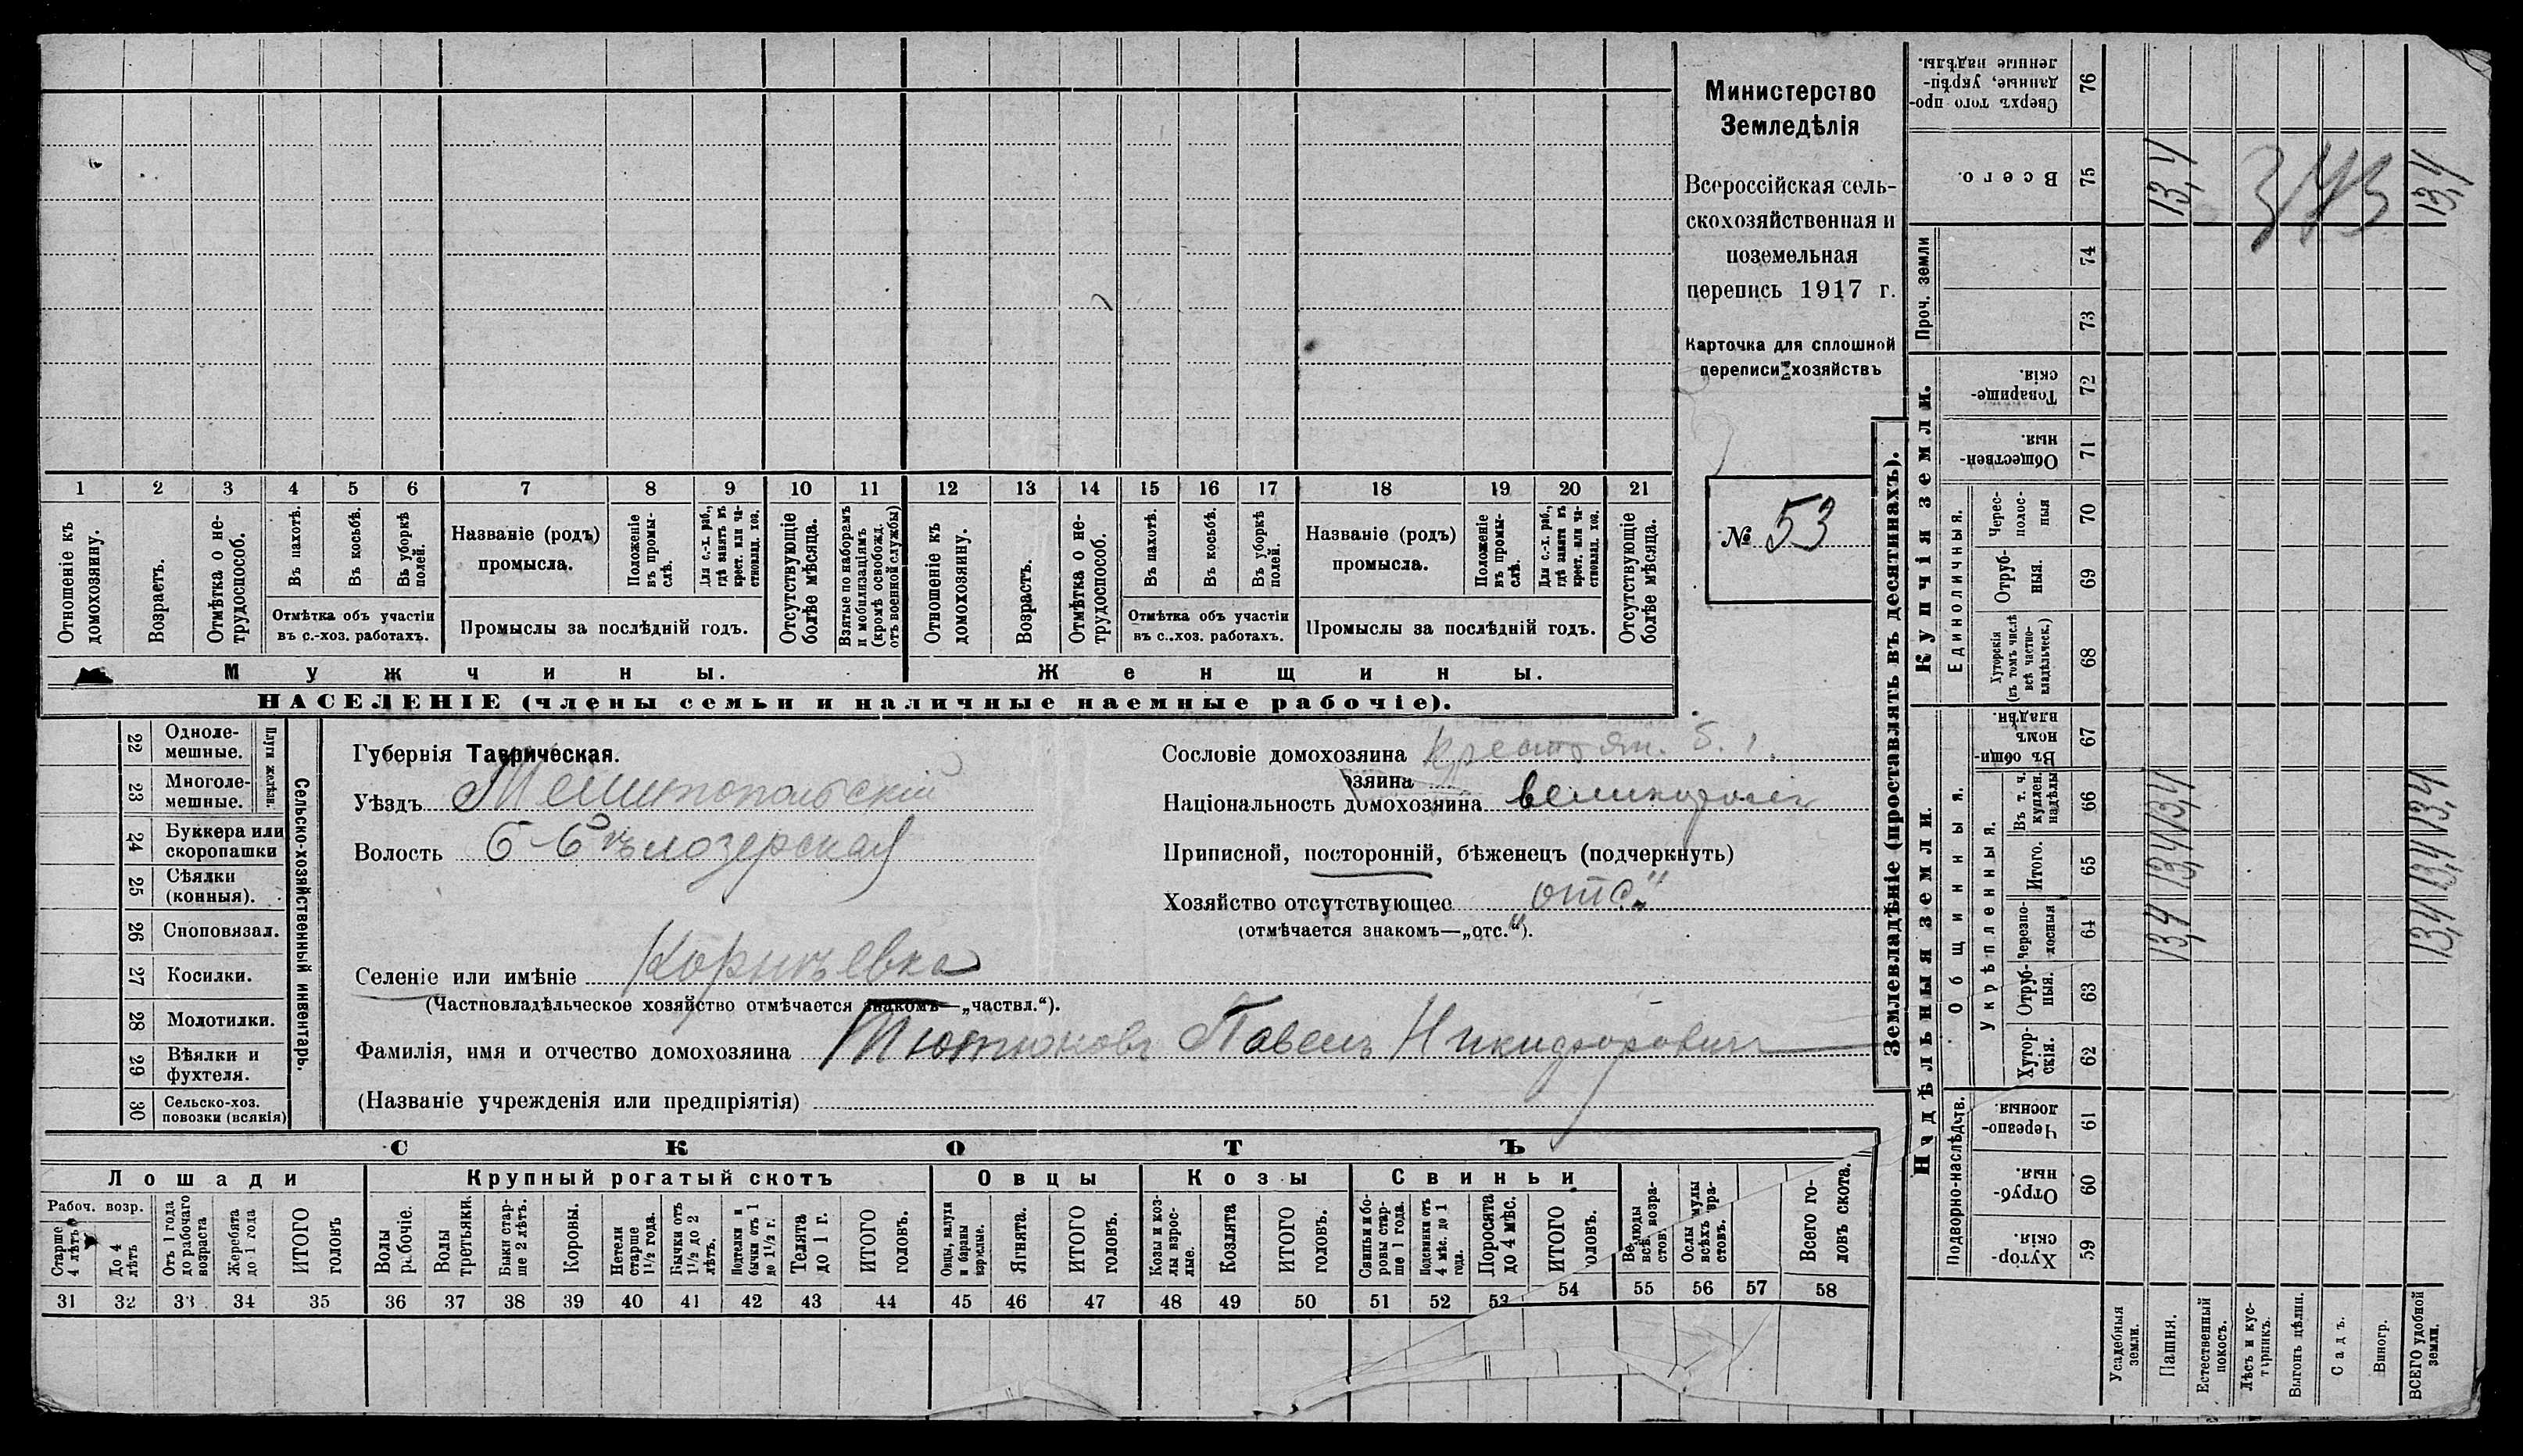 Министерство
Земледѣлія
Всероссійская сель-
скохозяйственная и
поземельная
перепись 1917 г.
Карточка для сплошной
переписи хозяйствъ
№ 53
1 2 3 4 5 6 7 8 9 10 11 12 13 14 15 16 17 18 19 20 21
Отношеніе къ домохозяину.
Возрастъ.
Отмѣтка о не-трудоспособ.
Въ пахотѣ.
Въ косьбѣ.
Въ уборкѣ полей.
Отмѣтка объ участіи
въ с.-хоз. работахъ.
Названіе (родъ)
промысла.
Положеніе въ промы-слѣ.
Для с.-х. раб., гдѣ занятъ въ крест. или ча-стновлад. хоз.
Промыслы за послѣдній годъ.
Отсутствующіе болѣе мѣсяца.
Взятые по наборамъ и мобилизаціямъ (кромѣ освобожд. отъ военной службы)
Отношеніе къ домохозяину.
Возрастъ.
Отмѣтка о не-трудоспособ.
Въ пахотѣ.
Въ косьбѣ.
Въ уборкѣ полей.
Отмѣтка объ участіи
въ с.-хоз. работахъ.
Названіе (родъ)
промысла.
Положеніе въ промы-слѣ.
Для с.-х. раб., гдѣ занятъ въ крест. или ча-стновлад. хоз.
Промыслы за послѣдній годъ.
Отсутствующіе болѣе мѣсяца.
Мужчины.
Женщины.
НАСЕЛЕНІЕ (члены семьи и наличные наемные рабочіе).
22 Одноле-мешные.
23 Многоле-мешные.
Плуги желѣзн.
24 Буккера или скоропашки
25 Сѣялки (конныя).
26 Сноповязал.
27 Косилки.
28 Молотилки.
29 Вѣялки и фухтеля.
30 Сельско-хоз. повозки (всякія)
Сельско-хозяйственный инвентарь.
Губернія Таврическая.
Уѣздъ Мелитопольскій
Волость Б-Бѣлозерская
Селеніе или имѣніе Корнѣевка
(Частновладѣльческое хозяйство отмѣчается знакомъ—„частвл.“).
Фамилія, имя и отчество домохозяина Тютюновъ Павелъ Никифоровичъ
(Названіе учрежденія или предпріятія)
Сословіе домохозяина крестьян.
озяина
Національность домохозяина великороссъ
Приписной, посторонній, бѣженецъ (подчеркнуть)
Хозяйство отсутствующее „отс.“
(отмѣчается знакомъ—„отс.“).
СКОТЪ
Лошади
Крупный рогатый скотъ
Овцы
Козы
Свиньи
Рабоч. возр.
Старше 4 лѣтъ
До 4 лѣтъ
Отъ 1 года до рабочаго возраста
Жеребята до 1 года
ИТОГО головъ
Волы рабочіе.
Волы третьяки.
Быки стар-ше 2 лѣтъ.
Коровы.
Нетели старше 1½ года.
Бычки отъ 1½ до 2 лѣтъ.
Подтелки и бычки отъ 1 до 1½ г.
Телята до 1 г.
ИТОГО головъ.
Овцы, валухи и бараны взрослые.
Ягнята.
ИТОГО головъ.
Козы и коз-лы взрос-лые.
Козлята
ИТОГО головъ.
Свиньи и бо-ровы стар-ше 1 года.
Подсвинки отъ 4 мѣс. до 1 года.
Поросята до 4 мѣс.
ИТОГО головъ.
Верблюды всѣ. возра-стовъ.
Ослы мулы всѣхъ возра-стовъ.
Всего го-ловъ скота.
31 32 33 34 35 36 37 38 39 40 41 42 43 44 45 46 47 48 49 50 51 52 53 54 55 56 57 58
Землевладѣніе (проставлять въ десятинахъ).
Надѣльныя земли.
Купчія земли.
Проч. земли
Подворно-наслѣдств.
Общинныя.
Укрѣпленныя.
Единоличныя.
59 Хутор-скія.
60 Отруб-ныя.
61 Черезпо-лосныя.
62 Хутор-скія.
63 Отруб-ныя.
64 Черезпо-лосныя
65 Итого.
66 Въ т. ч. куплен. надѣлы
67 Въ общи-номъ владѣн.
68 Хуторскія (въ томъ числѣ всѣ частно-владѣльческ.)
69 Отруб-ныя.
70 Черес-полос-ныя
71 Обществен-ныя.
72 Товарище-скія.
73
74
75 Всего.
76 Сверхъ того про-данные, укрѣп-ленные надѣлы.
Усадебныя земли.
Пашня. 13,4 13,4 13,4 13,4
Естественный покосъ.
Лѣсъ и кус-тарникъ.
Выгонъ цѣлин.
Садъ.
Виногр.
ВСЕГО удобной земли. 13,4 13,4 13,4 13,4